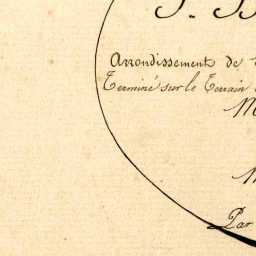 Arrondissement de
Terminé sur le Terrain
Par